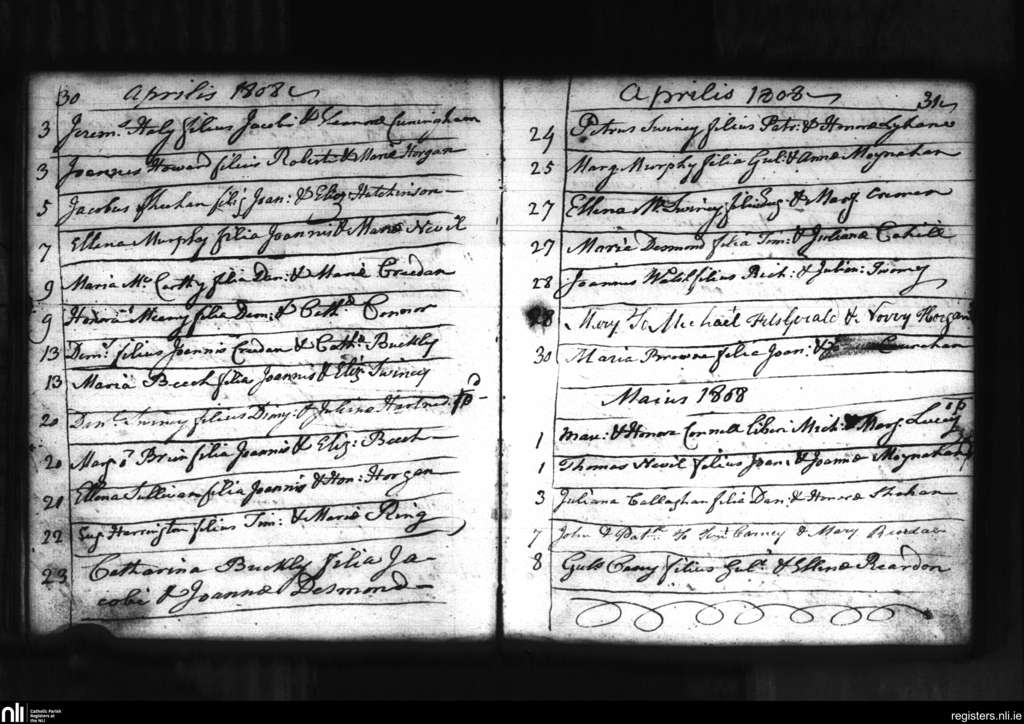 30 Aprilis 1808
3 Jerem.s Haly filius Jacobi & Leanoræ Cuningham
3 Joannes Howard filius Robert: & Mariæ Horgan
5 Jacobus Sheehan filij Joan: & Eliz: Hutchinson
7 Ellena Murphy filia Joannis & Mariæ Nevil
9 Maria Mc Cartty filia Den: & Mariæ Creedan
9 Honora Meany filia Dem: & Cath.a Connor
13 Den.s filius Joannis Creedan & Cath.a Buckly
13 Maria Beech filia Joannis & Eliz: Swiney
20 Den.s Swiney filius Diony: & Julianæ
20 Marg ō Brien filia Joannis & Eliz: Beech
21 Ellena Sullivan filia Joannis & Hon: Horgan
22 Eug Harrington filius Tim: & Mariæ Ring
23 Catharina Buckly filia Ja-
cobi & Joannæ Desmond
Aprilis 1808 31
24 Petrus Swiney filius Patr: & Honoræ Lyhane
25 Marg Murphy filia Gul: & Annæ Moynahan
27 Ellena Mc Swiney filia Eug & Marg Cronen
27 Maria Desmond filia Tim: & Julianæ Cahill
28 Joannes Walsh filius Rich: & Julian: Twomy
28 Mary To Michael Fitsgerald & Norry Horgan
30 Maria Browne filia Joan: &
Maius 1808
1 & Honora Connell liberi Mich: & Marg: Lucey
1 Thomas Nevil filius Joan: & Joannæ Moynahan
3 Juliana Callaghan filia Dan: & Honoræ Shehan
7 John & Pat.k To Carney & Mary Riordan
8 Gul.s Casey filius Gul.i & Ellenæ Reardon
nli
Catholic Parish
Registers at
the NLI
registers.nli.ie